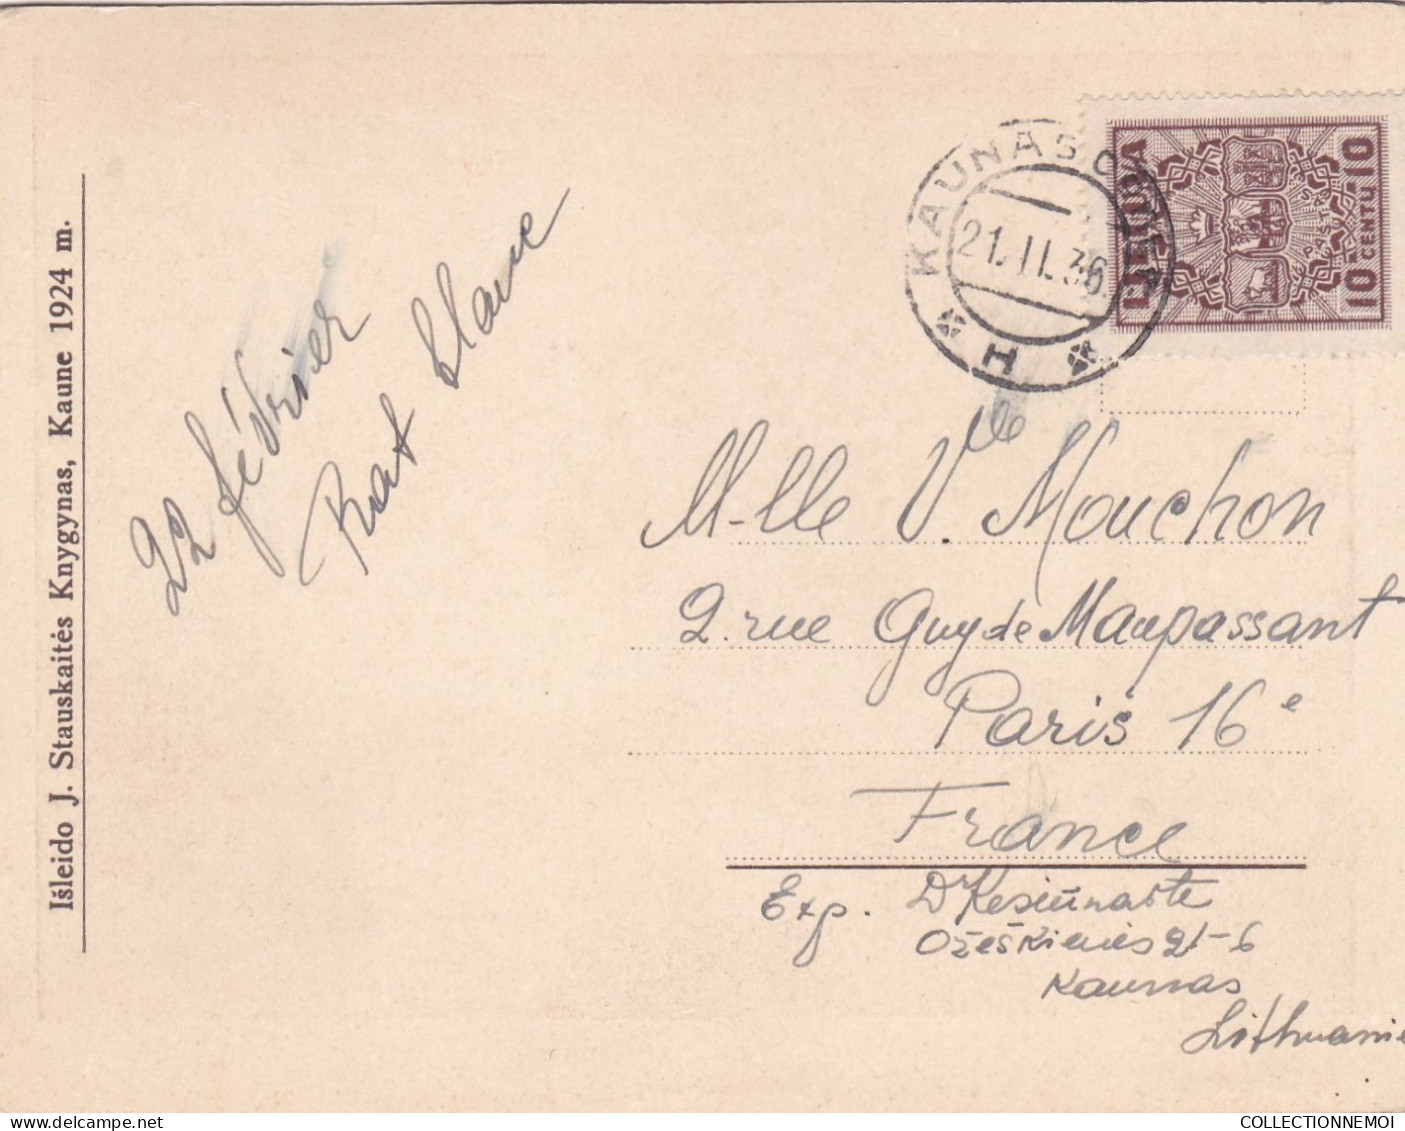 Išleido J. Stauskaitės Knygynas, Kaune 1924 m.
22 février
KAUNAS
21.II.36
H
LIETUVA
10 CENTŲ 10
PAŠT
M-lle V. Mouchon
2. rue Guy de Maupassant
Paris 16e
France
Exp.
Ožeškienės 21-6
Kaunas
Lithuanie
COLLECTIONNEMOI